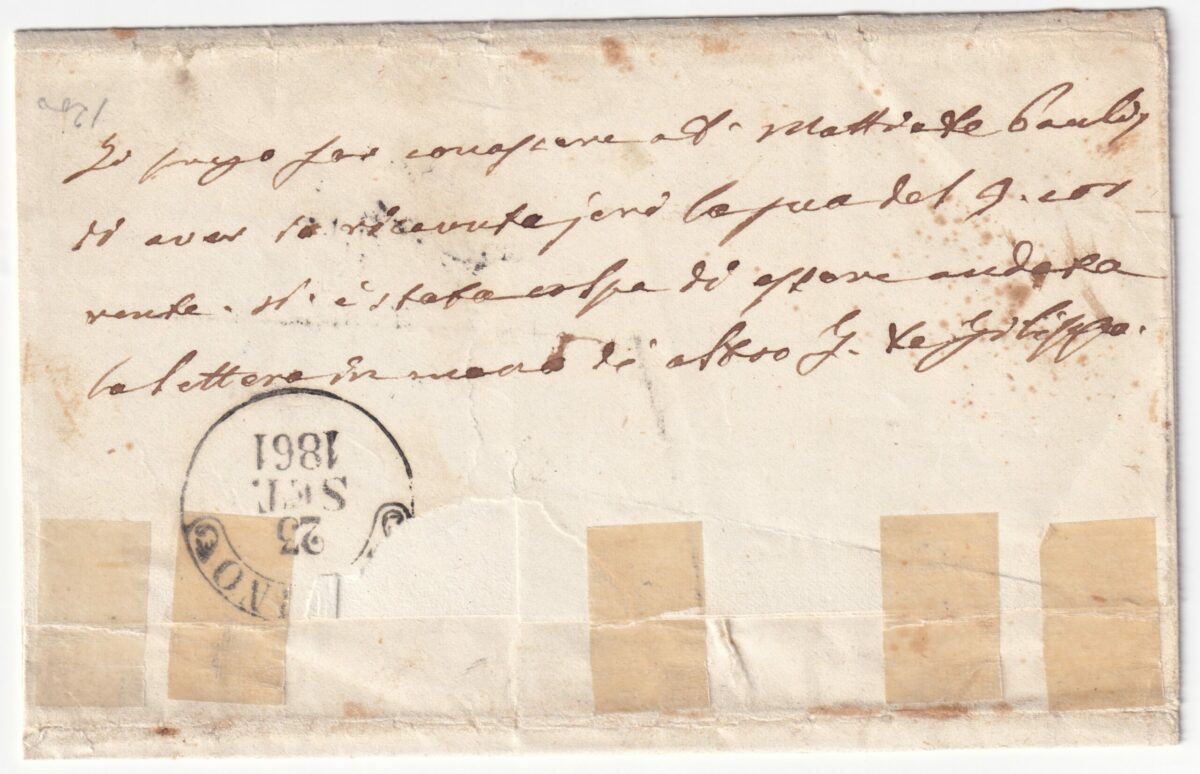 Vi prego far conoscere a D. Mattia de Paulis
di aver io ricevuta jeri la sua del 9. cor-
rente. Vi è stata colpa di essere andata
la lettera in mano di altro G. de Filippo.
23
SET.
1861